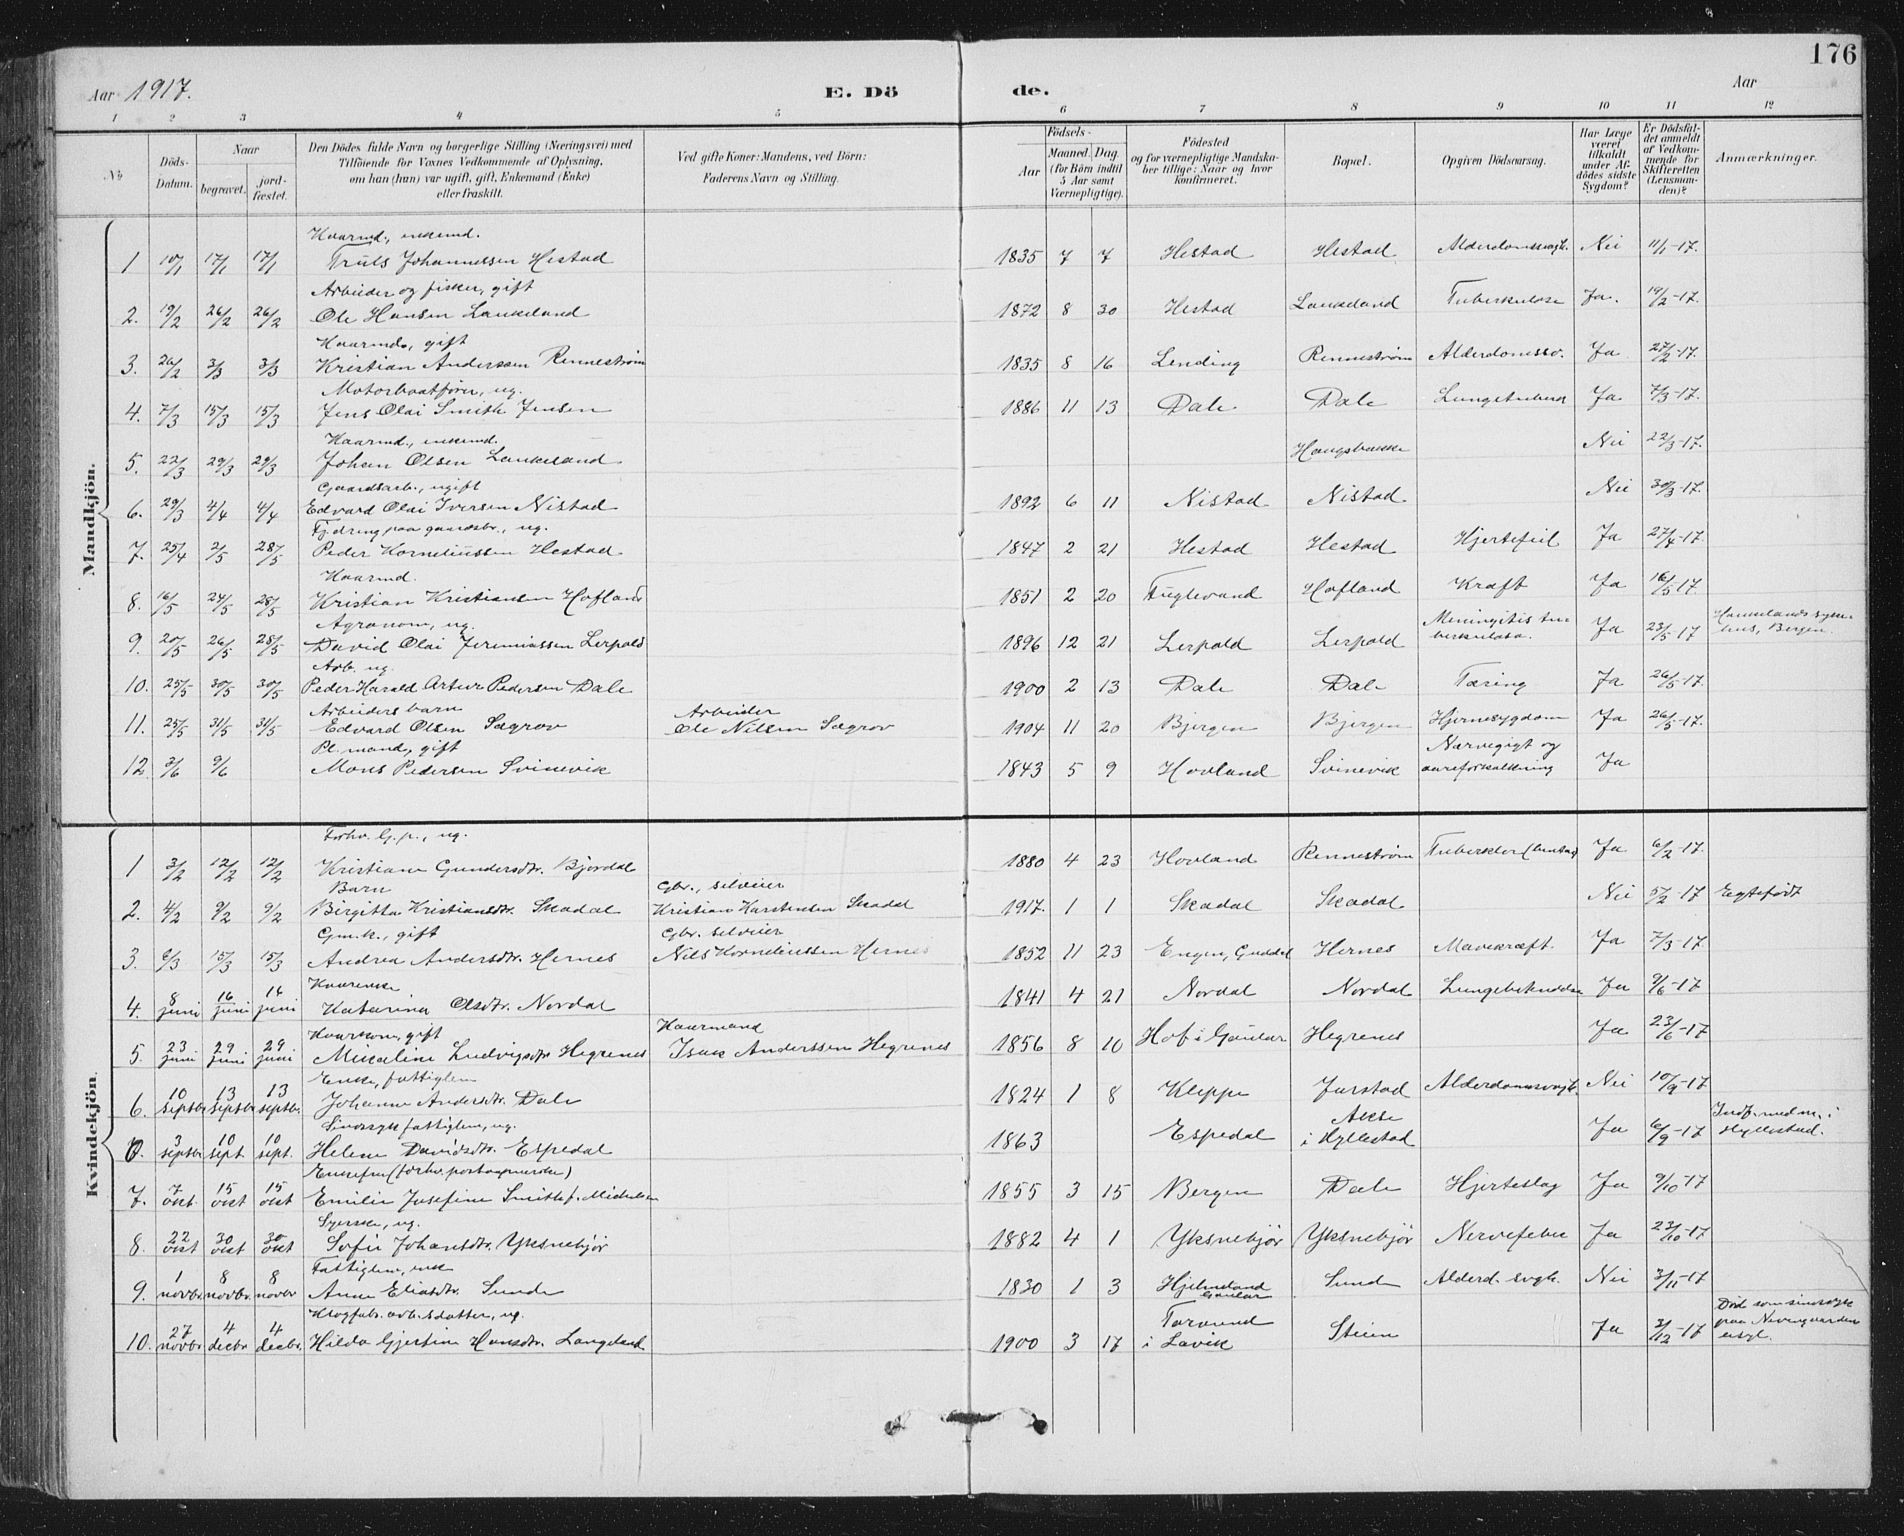 176
Aar 1917. E. Dö de. Aar
1 2 3 4 5 6 7 8 9 10 11 12
No
Döds-Datum.
Naar
begravet.
jordfæstet.
Den Dödes fulde Navn og borgerlige Stilling (Næringsvei) med
Tilföiende for Voxnes Vedkommende af Oplysning,
om han (hun) var ugift, gift, Enkemand (Enke)
eller fraskilt.
Ved gifte Koner: Mandens, ved Börn:
Faderens Navn og Stilling.
Födsels-
Aar
Maaned. Dag.
(for Börn indtil
5 Aar samt
Værnepligtige).
Födested
og for værnepligtige Mandskaber
tillige: Naar og hvor
konfirmeret.
Bopæl.
Opgiven Dödsaarsag.
Har Læge
været
tilkaldt
under Afdödes
sidste
Sygdom?
Er Dödsfaldet
anmeldt
af Vedkommende
for
Skifteretten
(Lensmanden)?
Anmærkninger.
Mandkjön.
Kaarmd., enkemd.
1 10/1 17/1 17/1 Truls Johannessen Hestad 1835 7 7 Hestad Hestad Alderdomssvagh. Nei 11/1-17.
Arbeider og fisker, gift
2. 19/2 26/2 26/2 Ole Hansen Laukeland 1872 8 30 Hestad Laukeland Tuberkulose Ja. 19/2-17.
Kaarmd., gift
3. 26/2 3/3 3/3 Kristian Andersen Rennestrøm 1835 8 16 Lending Rennestrøm Alderdomssv. Ja 27/2-17.
Motorbaatfører, ug.
4. 7/3 15/3 15/3 Jens Olai Smith Jensen 1886 11 13 Dale Dale Lungetuberk Ja 7/3-17.
Kaarmd., enkemd.
5. 22/3 29/3 29/3 Johan Olsen Laukeland Haugsbakke Nei 22/3-17.
Gaardsarb., ugift
6. 29/3 4/4 4/4 Edvard Olai Iversen Nistad 1892 6 11 Nistad Nistad Nei 30/3-17.
Fjdreng paa gaardsbr., ug.
7. 25/4 2/5 28/5 Peder Korneliussen Hestad 1847 2 21 Hestad Hestad Hjertefeil Ja 27/4-17.
Kaarmd.
8. 16/5 24/5 28/5 Kristian Kristiansen Hofland 1851 2 20 Fuglevand Hofland Kræft Ja 16/5-17.
Agronom, ug.
9. 20/5 26/5 28/5 David Olai Jeremiassen Lerpold 1896 12 21 Lerpold Lerpold Meningitis tuberkulosa. Ja 23/5-17 Haukelands sykehus, Bergen.
Arb. ug.
10. 25/5 30/5 30/5 Peder Harald Artur Pedersen Dale 1900 2 13 Dale Dale Tæring Ja 26/5-17.
Arbeiders barn Arbeider
11. 25/5 31/5 31/5 Edvard Olsen Sægrov Ole Nilsen Sægrov 1904 11 20 Bjergen Bjergen Hjernesygdom Ja 26/5-17.
Pl. mand, gift
12 3/6 9/6 Mons Pedersen Svinevik 1843 5 9 Hovland Svinevik Nervegigt og aareforkalkning Ja
Kvindekjön.
Forhv. G. p., ug.
1 3/2 12/2 12/2 Kristiane Gundersdtr. Bjordal 1880 4 23 Hovland Rennestrøm Ja 6/2-17.
Barn Gbr., selveier
2. 4/2 9/2 9/2 Birgitta Kristiansdtr. Skadal Kristian Karstensen Skadal 1917. 1 1 Skadal Skadal Nei 5/2-17 Egtefødt
Gm.k., gift Gbr. selveier
3. 6/3 15/3 15/3 Andrea Andersdtr. Hernes Nils Korneliussen Hernes 1852 11 23 Engen, Guddal Hernes Mavekræft. Ja 7/3-17
Kaarenke
4. 8 juni 16 juni 16 juni Katarina Olsdtr. Nordal 1841 4 21 Nordal Nordal Lungebetændelse Ja 9/6-17
Kaarkone, gift Kaarmand
5. 23 juni 29 juni 29 juni Mikaline Ludvigsdtr Hegrenes Isak Anderssen Hegrenes 1856 8 10 Hof i Gaular Hegrenes Ja 23/6-17
Enke, fattiglem
6. 10 septbr 13 septbr 13 septbr. Johanne Andersdtr. Dale 1824 1 8 Kleppe Jarstad Alderdomssvagh. Nei 10/9-17
Sindssyk fattiglem, ug.
0. 3 septbr 10 sept 10 sept. Helene Davidsdtr. Espedal 1863 Espedal Akse i Hyllestad Ja 6/9-17 Indf. med no. i Hyllestad.
Enkefru (forhv. postaapnerske)
7. 7 okt. 15 okt 15 okt Emilie Josefine Smith f. Michelsen 1855 3 15 Bergen Dale Hjerteslag Ja 9/10-17
Syerske, ug.
8. 22 okt 30 okt 30 okt Sofie Johansdtr. Yksnebjør 1882 4 1 Yksnebjør Yksnebjør Nervefeber Ja 23/10-17
Fattiglem, enke
9. 1 novbr. 8 novbr. 8 novbr Anne Eliasdtr. Sunde 1830 1 3 Hjelmeland Gaular Sund Alderd. svgh. Nei 3/11-17
arb.sdatter, ug.
10. 27 novbr. 4 decbr. 4 decbr. Hilda Gjertine Hansdtr. Langeland 1900 3 17 i Lavik Steien Ja 3/12-17 Død som sindssyk paa Nevengaarden asyl.